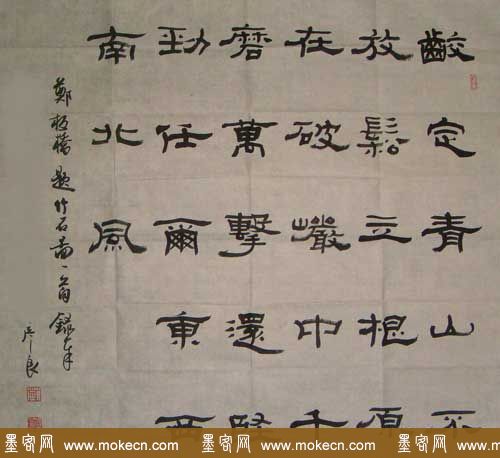 齩定青山不
放鬆立根原
在破巖中千
磨萬擊還堅
勁任爾東西
南北風
鄭板橋題竹石圖一首
墨客网 www.mokecn.com 墨客网 www.mokecn.com 墨客网 www.mokecn.com